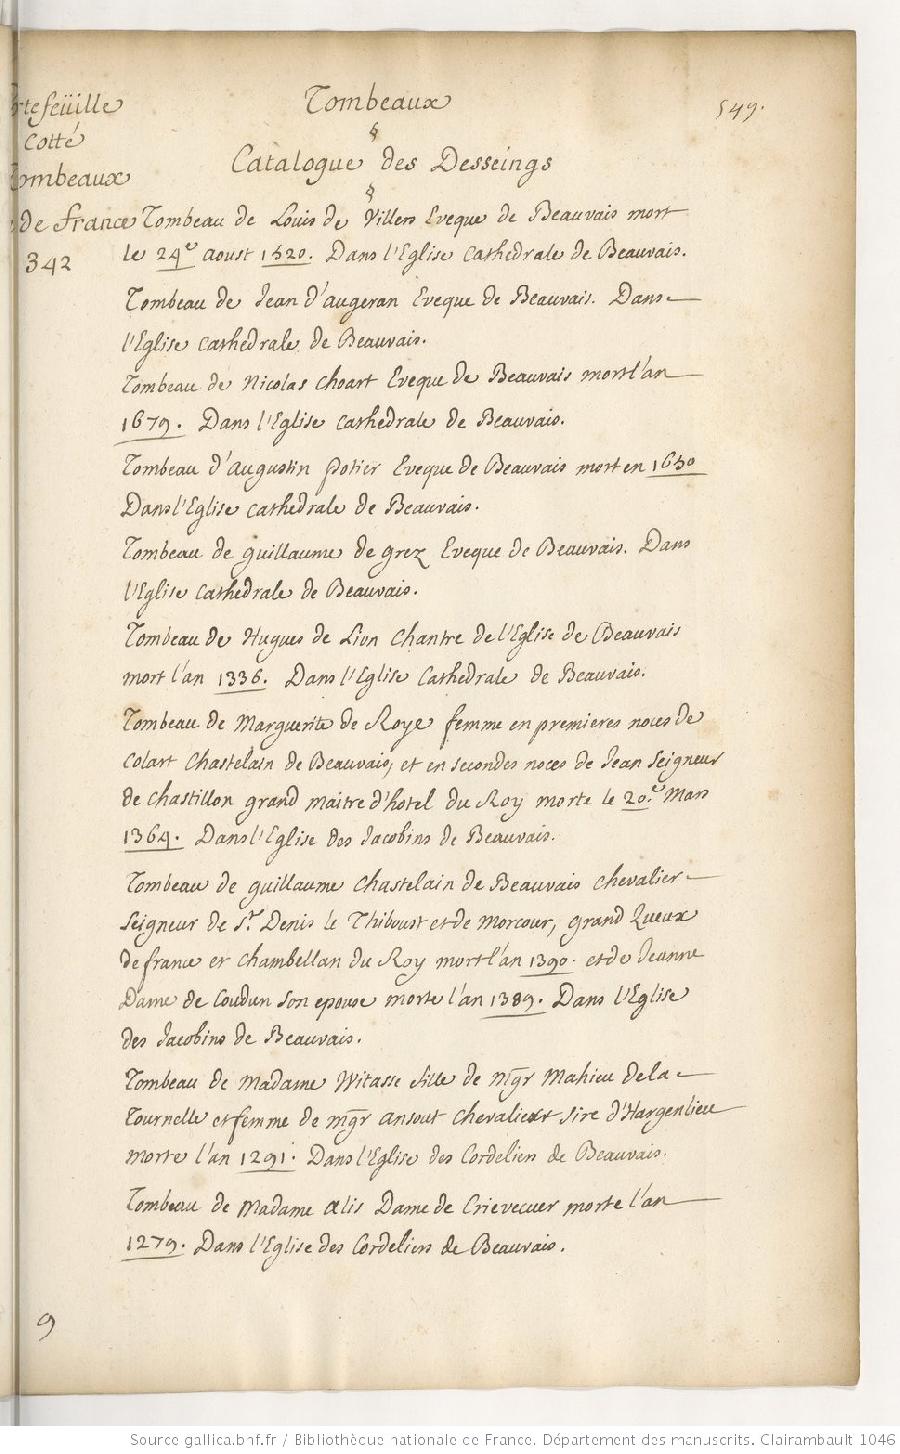 Tombeaux
549.
rtefeüille
Cotté
ombeaux
de france
342
§
Catalogue des Desseings
§
Tombeau de Louis de Villers Eveque de Beauvais mort
le 24e aoust 1520. Dans l'Eglise Cathedrale de Beauvais.
Tombeau de Jean d'augeran Eveque de Beauvais. Dans
l'Eglise cathedrale de Beauvais.
Tombeau de Nicolas choart Eveque de Beauvais mort l'an
1679. Dans l'Eglise cathedrale de Beauvais.
Tombeau d'augustin potier Eveque de Beauvais mort en 1650
Dans l'Eglise cathedrale de Beauvais.
Tombeau de guillaume de grez Eveque de Beauvais. Dans
l'Eglise Cathedrale de Beauvais.
Tombeau de Hugues de Lion Chantre de l'Eglise de Beauvais
mort l'an 1336. Dans l'Eglise Cathedrale de Beauvais.
Tombeau de Marguerite de Roye femme en premieres noces de
Colart Chastelain de Beauvais, et en secondes noces de Jean Seigneur
de chastillon grand maitre d'hotel du Roy morte le 20e Mars
1364. Dans l'Eglise des Jacobins de Beauvais.
Tombeau de guillaume Chastelain de Beauvais chevalier
Seigneur de St. Denis le Thiboust et de Morcour, grand Queux
de france et Chambellan du Roy mort l'an 1390. et de Jeanne
Dame de Coudun son epouse morte l'an 1389. Dans l'Eglise
des Jacobins de Beauvais.
Tombeau de Madame Witasse fille de mgr Mahieu de la
Tournelle et femme de mgr ansout chevalier sire d'Hargenlieu
morte l'an 1291. Dans l'Eglise des Cordeliers de Beauvais.
Tombeau de Madame alis Dame de Crievecuer morte l'an
1279. Dans l'Eglise des Cordeliers de Beauvais.
9
Source gallica.bnf.fr / Bibliothèque nationale de France. Département des manuscrits. Clairambault 1046